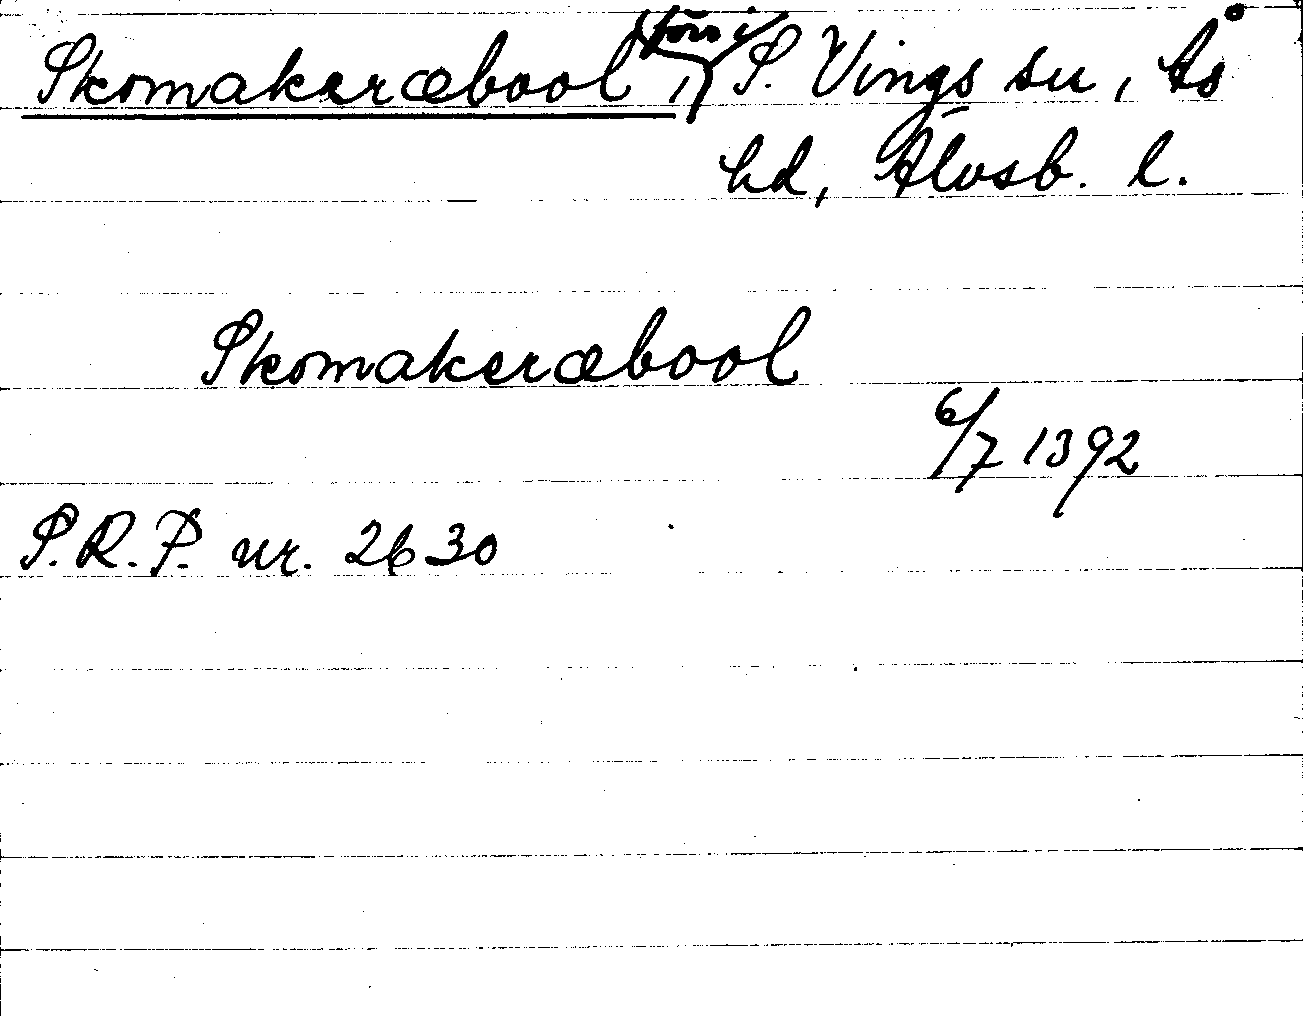 Skomakeræbool, förr i S. Vings sn, Ås
hd, Älvsb. l.
Skomakeræbool
6/7 1392
S.R.P. nr. 2630